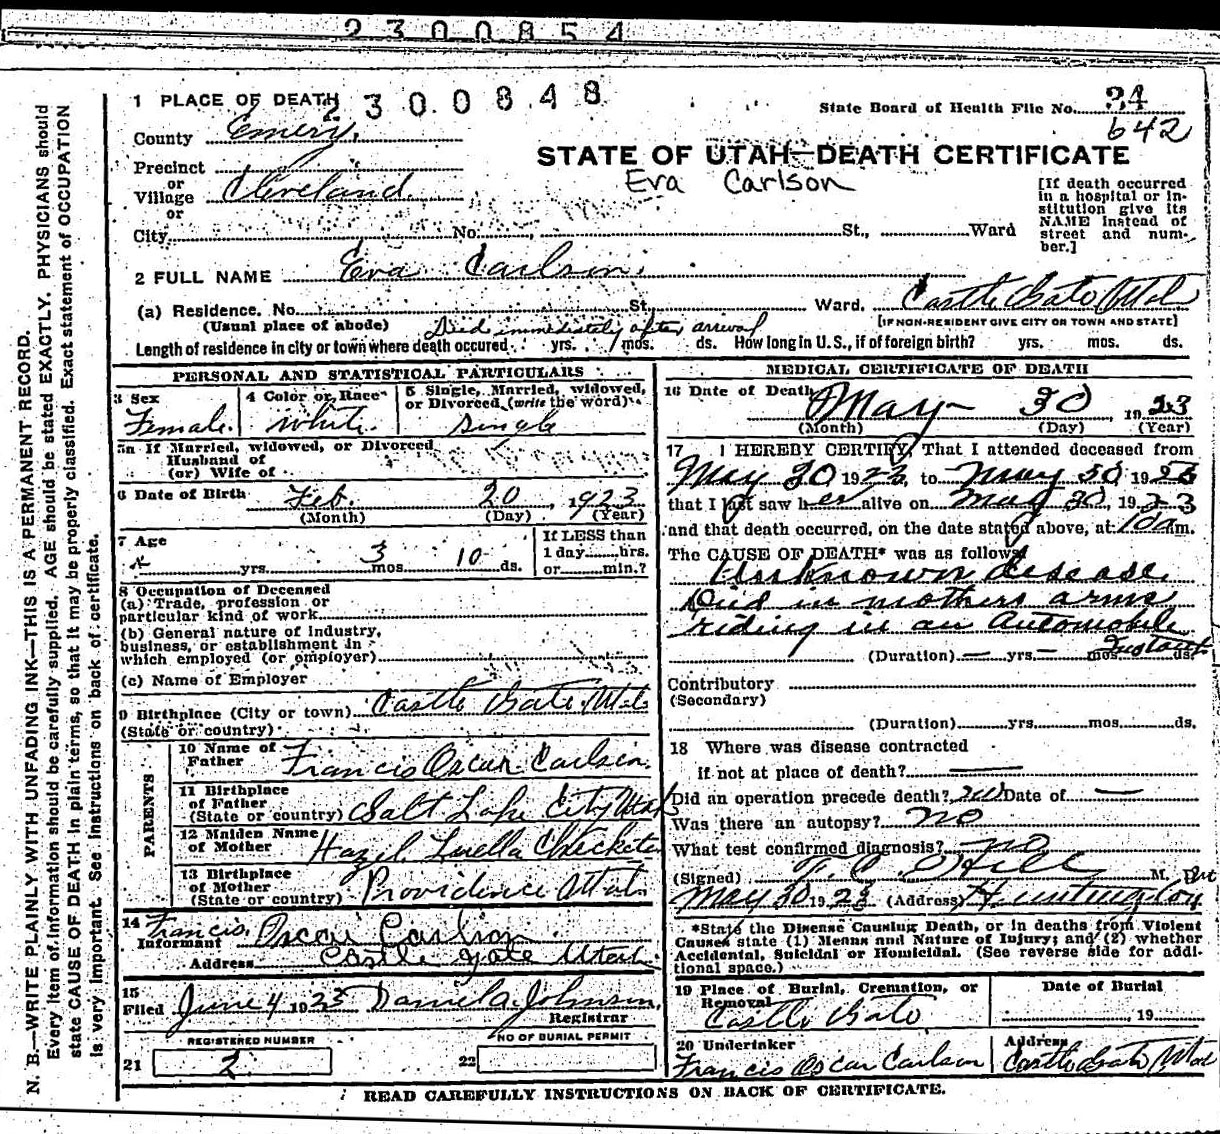 2300854
2300848
1 PLACE OF DEATH
County Emery.
Precinct
or
Village Cleveland
or
City No. St., Ward
State Board of Health File No. 24
642
STATE OF UTAH—DEATH CERTIFICATE
Eva Carlson
[If death occurred
in a hospital or in-
stitution give its
NAME instead of
street and num-
ber.]
2 FULL NAME Eva Carlson.
(a) Residence. No. St. Ward. Castle Gate Utah
(Usual place of abode) Died immediately after arrival [IF NON-RESIDENT GIVE CITY OR TOWN AND STATE]
Length of residence in city or town where death occured yrs. mos. ds. How long in U.S., if of foreign birth? yrs. mos. ds.
PERSONAL AND STATISTICAL PARTICULARS
3 Sex
Female.
4 Color or Race
White.
5 Single, Married, widowed,
or Divorced (write the word)
Single
5a If Married, widowed, or Divorced
Husband of
(or) Wife of
6 Date of Birth Feb. 20, 1923
(Month) (Day) (Year)
7 Age
yrs. 3 mos. 10 ds.
If LESS than
1 day hrs.
or min.?
8 Occupation of Deceased
(a) Trade, profession or
particular kind of work
(b) General nature of Industry,
business, or establishment in
which employed (or employer)
(c) Name of Employer
9 Birthplace (City or town) Castle Gate, Utah
(State or country)
PARENTS
10 Name of
Father Francis Oscar Carlson.
11 Birthplace
of Father
(State or country) Salt Lake City Utah
12 Maiden Name
of Mother Hazel Luella
13 Birthplace
of Mother
(State or country) Providence Utah
14 Francis
Informant Oscar Carlson.
Address Castle gate Utah.
15
Filed June 4 1923 Daniel A. Johnson,
Registrar
REGISTERED NUMBER
21 2
NO OF BURIAL PERMIT
22
MEDICAL CERTIFICATE OF DEATH
16 Date of Death May 30 1923
(Month) (Day) (Year)
17 I HEREBY CERTIFY, That I attended deceased from
May 30 1923 to May 30 1923
that I last saw her alive on May 30, 1923
and that death occurred, on the date stated above, at 10 a m.
The CAUSE OF DEATH* was as follows:
Unknown disease
Died in mothers arms
riding in an Automobile
(Duration) — yrs. — mos. Instant ds.
Contributory
(Secondary)
(Duration) yrs. mos. ds.
18 Where was disease contracted
If not at place of death? —
Did an operation precede death? no Date of —
Was there an autopsy? no
What test confirmed diagnosis? no
(Signed) T. C. Hill M. D.
May 30 1923 (Address) Huntington
*State the Disease Causing Death, or in deaths from Violent
Causes state (1) Means and Nature of Injury; and (2) whether
Accidental, Suicidal or Homicidal. (See reverse side for addi-
tional space.)
19 Place of Burial, Cremation, or
Removal
Castle Gate
Date of Burial
19
20 Undertaker
Francis Oscar Carlson
Address
Castle Gate Utah
READ CAREFULLY INSTRUCTIONS ON BACK OF CERTIFICATE.
N. B.—WRITE PLAINLY WITH UNFADING INK—THIS IS A PERMANENT RECORD.
Every item of information should be carefully supplied. AGE should be stated EXACTLY. PHYSICIANS should
state CAUSE OF DEATH in plain terms, so that it may be properly classified. Exact statement of OCCUPATION
is very important. See instructions on back of certificate.